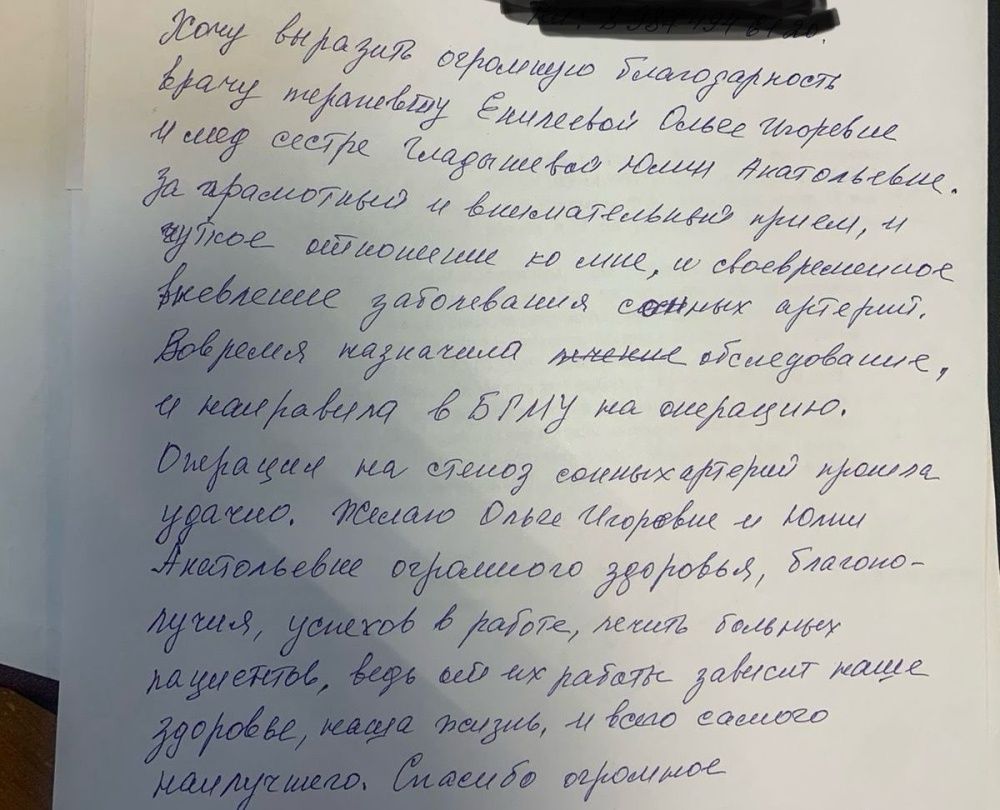 Хочу выразить огромную благодарность
врачу терапевту Еникеевой Ольге Игоревне
и мед сестре Гладышевой Юлии Анатольевне.
За грамотный и внимательный прием, и
чуткое отношение ко мне, и своевременное
вневление заболевания сонных артерий.
Вовремя назначила лечение обследование,
и направила в БГМУ на операцию.
Операция на стеноз сонных артерий прошла
удачно. Желаю Ольге Игоревне и Юлии
Анатольевне огромного здоровья, благопо-
лучия, успехов в работе, лечить больных
пациентов, ведь от их работы зависит наше
здоровье, наша жизнь, и всего самого
наилучшего. Спасибо огромное